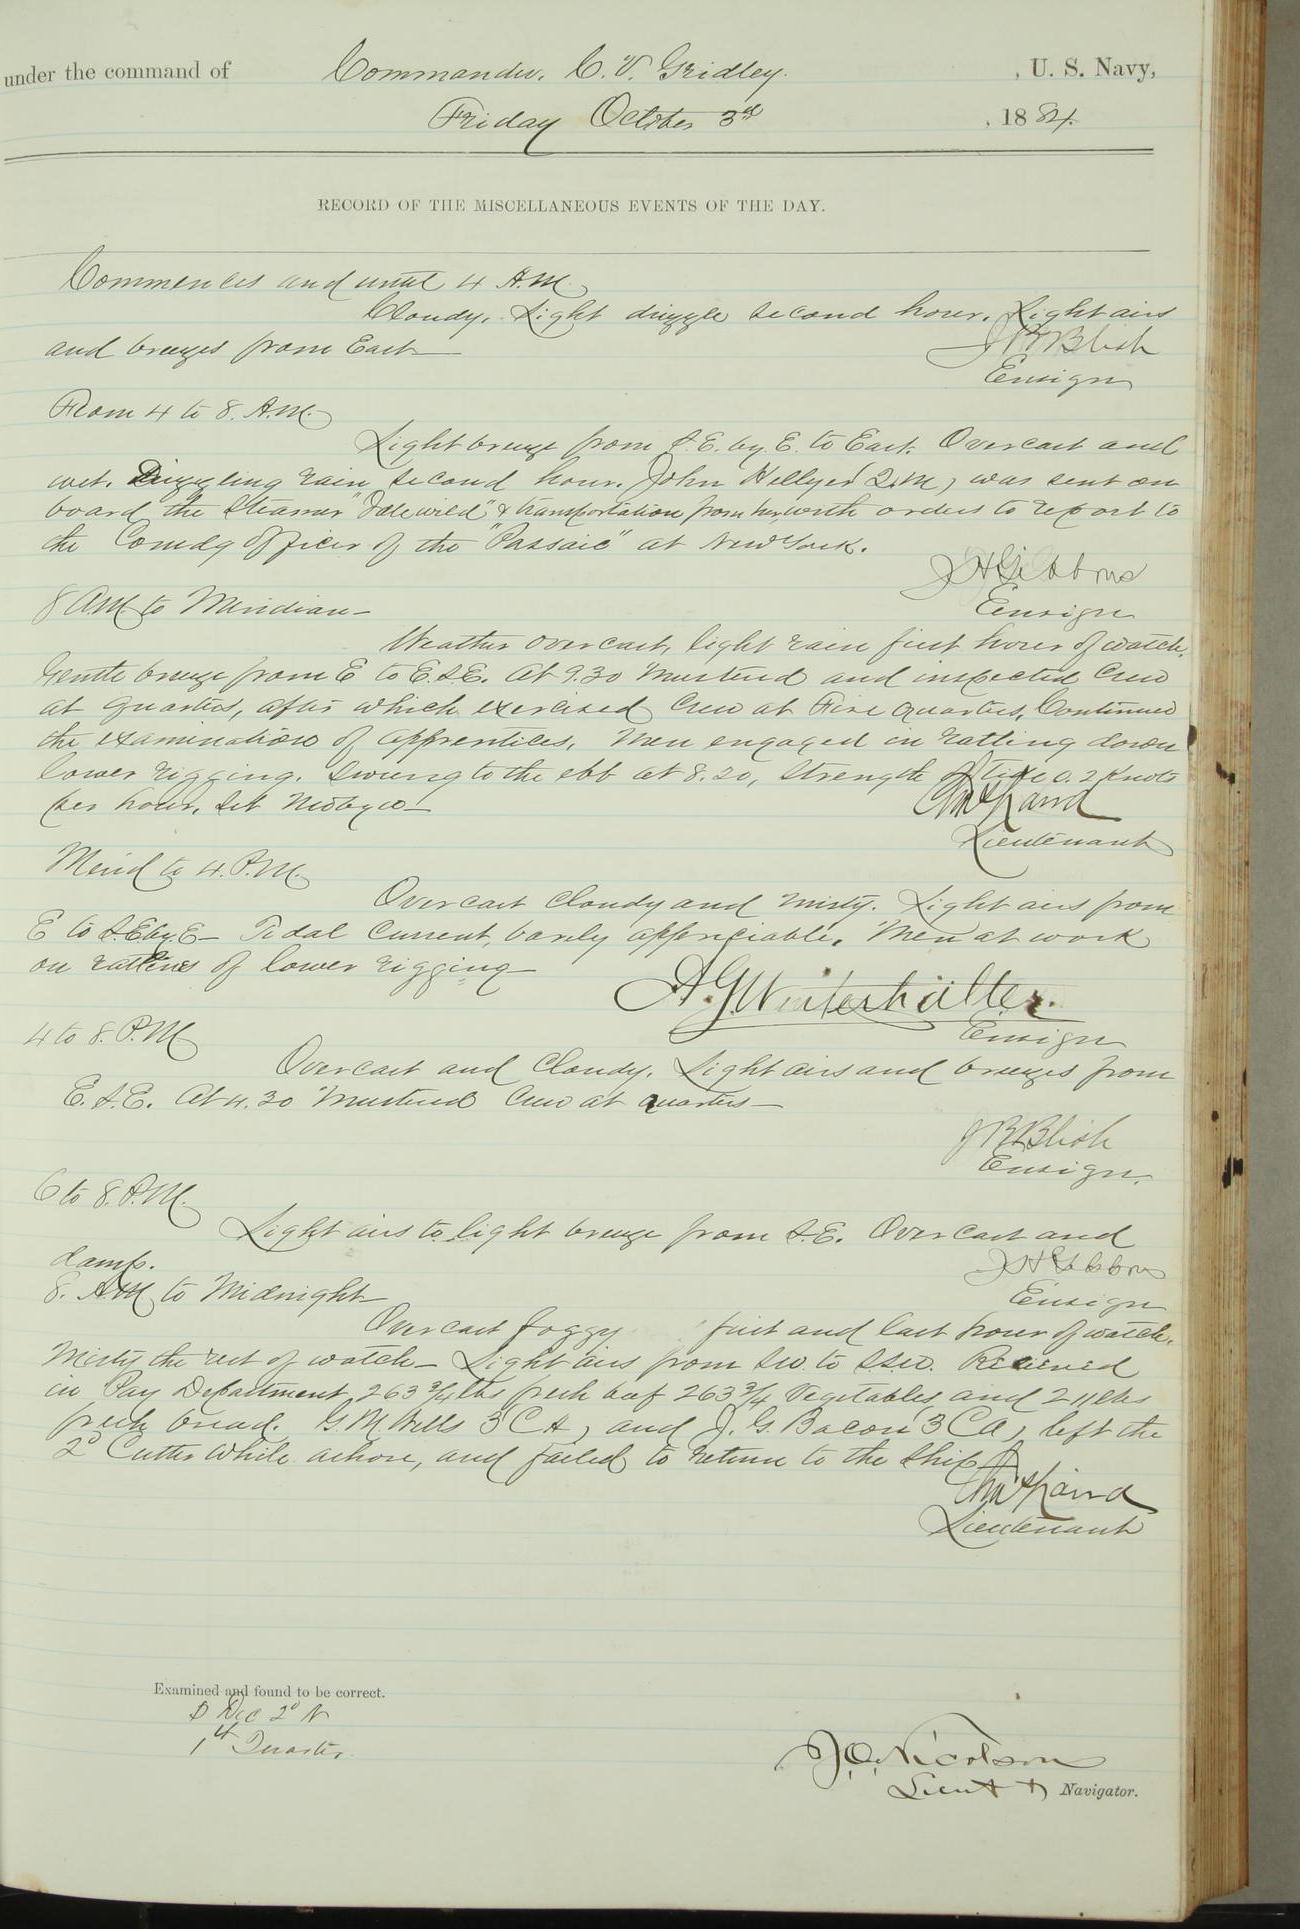 under the command of Commander, C. V. Gridley. , U. S. Navy,
Friday October 3rd , 1884.
RECORD OF THE MISCELLANEOUS EVENTS OF THE DAY.
Commences and until 4 A.M.
Cloudy. Light drizzle second hour. Light airs
and breezes from East—
J R Blish
Ensign
From 4 to 8. A.M.
Light breeze from S.E. by E. to East. Overcast and
wet. Drizzling rain second hour. John Hellyer (Q.M.) was sent on
board the Steamer "Idlewild" & transportation from her, with orders to report to
the Comdg Officer of the "Passaic" at New York.
J H Gibbons
Ensign
8 A.M. to Meridian—
Weather overcast, light rain first hour of watch.
Gentle breeze from E to E.S.E. At 9.30 Mustered and inspected Crew
at quarters, after which exercised Crew at Fire quarters, Continued
the examination of apprentices. Men engaged in ratling down
lower rigging. Swung to the ebb at 8.20, strength of tide 0.2 Knots
per hour, set
Lieutenant
Merid to 4. P.M.
Overcast cloudy and misty. Light airs from
E to S.E by. E— Tidal current, barely appreciable. Men at work
on ratlines of lower rigging—
A. G. Winterhalter.
Ensign
4 to 8. P.M
Overcast and cloudy. Light airs and breezes from
E.S.E. At 4.30 Mustered Crew at quarters—
J R Blish
Ensign.
6 to 8. P.M.
Light airs to light breeze from S.E. Overcast and
damp.
J H Gibbons
Ensign
8. A.M. to Midnight—
Overcast foggy first and last hour of watch.
Misty the rest of watch— Light airs from SW. to SSW. Received
in Pay Department, 263 3/4 lbs fresh beef 263 3/4 Vegetables and 211 lbs
fresh bread. G. M. Wells (3 C A) and J. G. Bacon (3 C A) left the
2d Cutter while ashore, and failed to return to the ship
Lieutenant
Examined and found to be correct.
Dec 2d N
1st Quarter.
J. O. Nicolson
Lieut & Navigator.